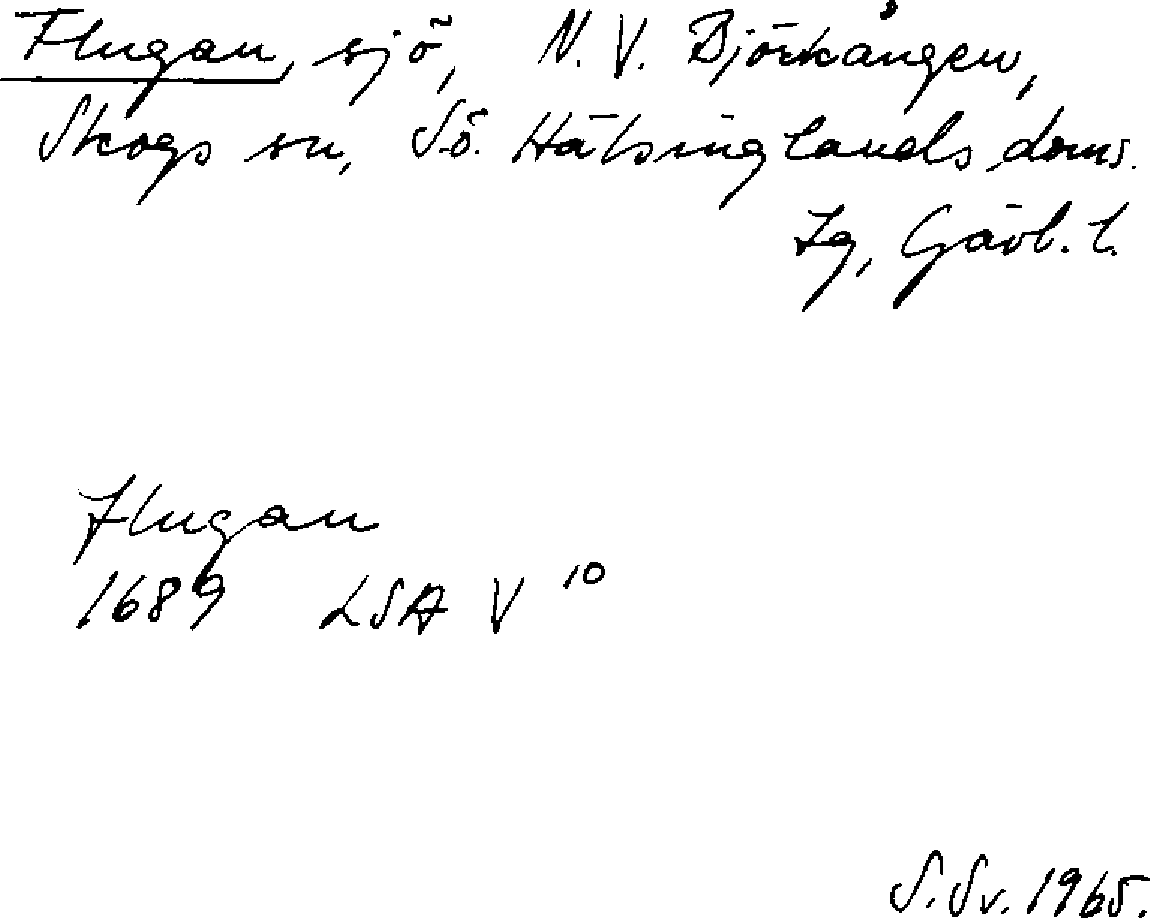 Flugan, sjö, N.V. Björkången,
Skogs sn, S.ö. Hälsinglands doms.
Lg, Gävl. l.
Flugan
1689 LSA V 10
S. Sv. 1965.